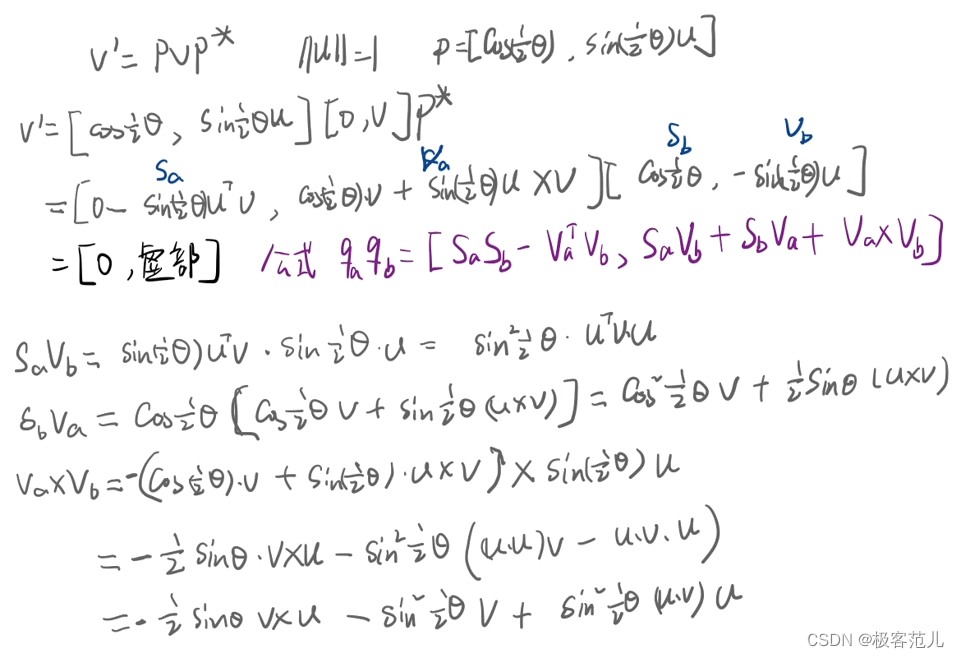 v' = pvp* ‖u‖=1 p=[cos(½θ), sin(½θ)u]
v'=[cos½θ, sin½θu][0,v]p*
Sa Va Sb Vb
=[0- sin(½θ)uᵀv, cos(½θ)·v + sin(½θ)u×v][cos½θ, -sin(½θ)u]
=[0, 虚部] 公式 qₐq_b=[SaSb - VaᵀVb, SaVb + SbVa + Va×Vb]
SaVb = sin(½θ)uᵀv · sin½θ·u = sin²½θ · uᵀv·u
SbVa = cos½θ[cos½θ v + sin½θ(u×v)] = cos²½θ v + ½sinθ (u×v)
Va×Vb=-(cos(½θ)·v + sin(½θ)·u×v) × sin(½θ) u
= -½ sinθ·v×u - sin²½θ ((u·u)v - u·v·u)
= -½ sinθ v×u - sin²½θ v + sin²½θ (u·v) u
CSDN @极客范儿